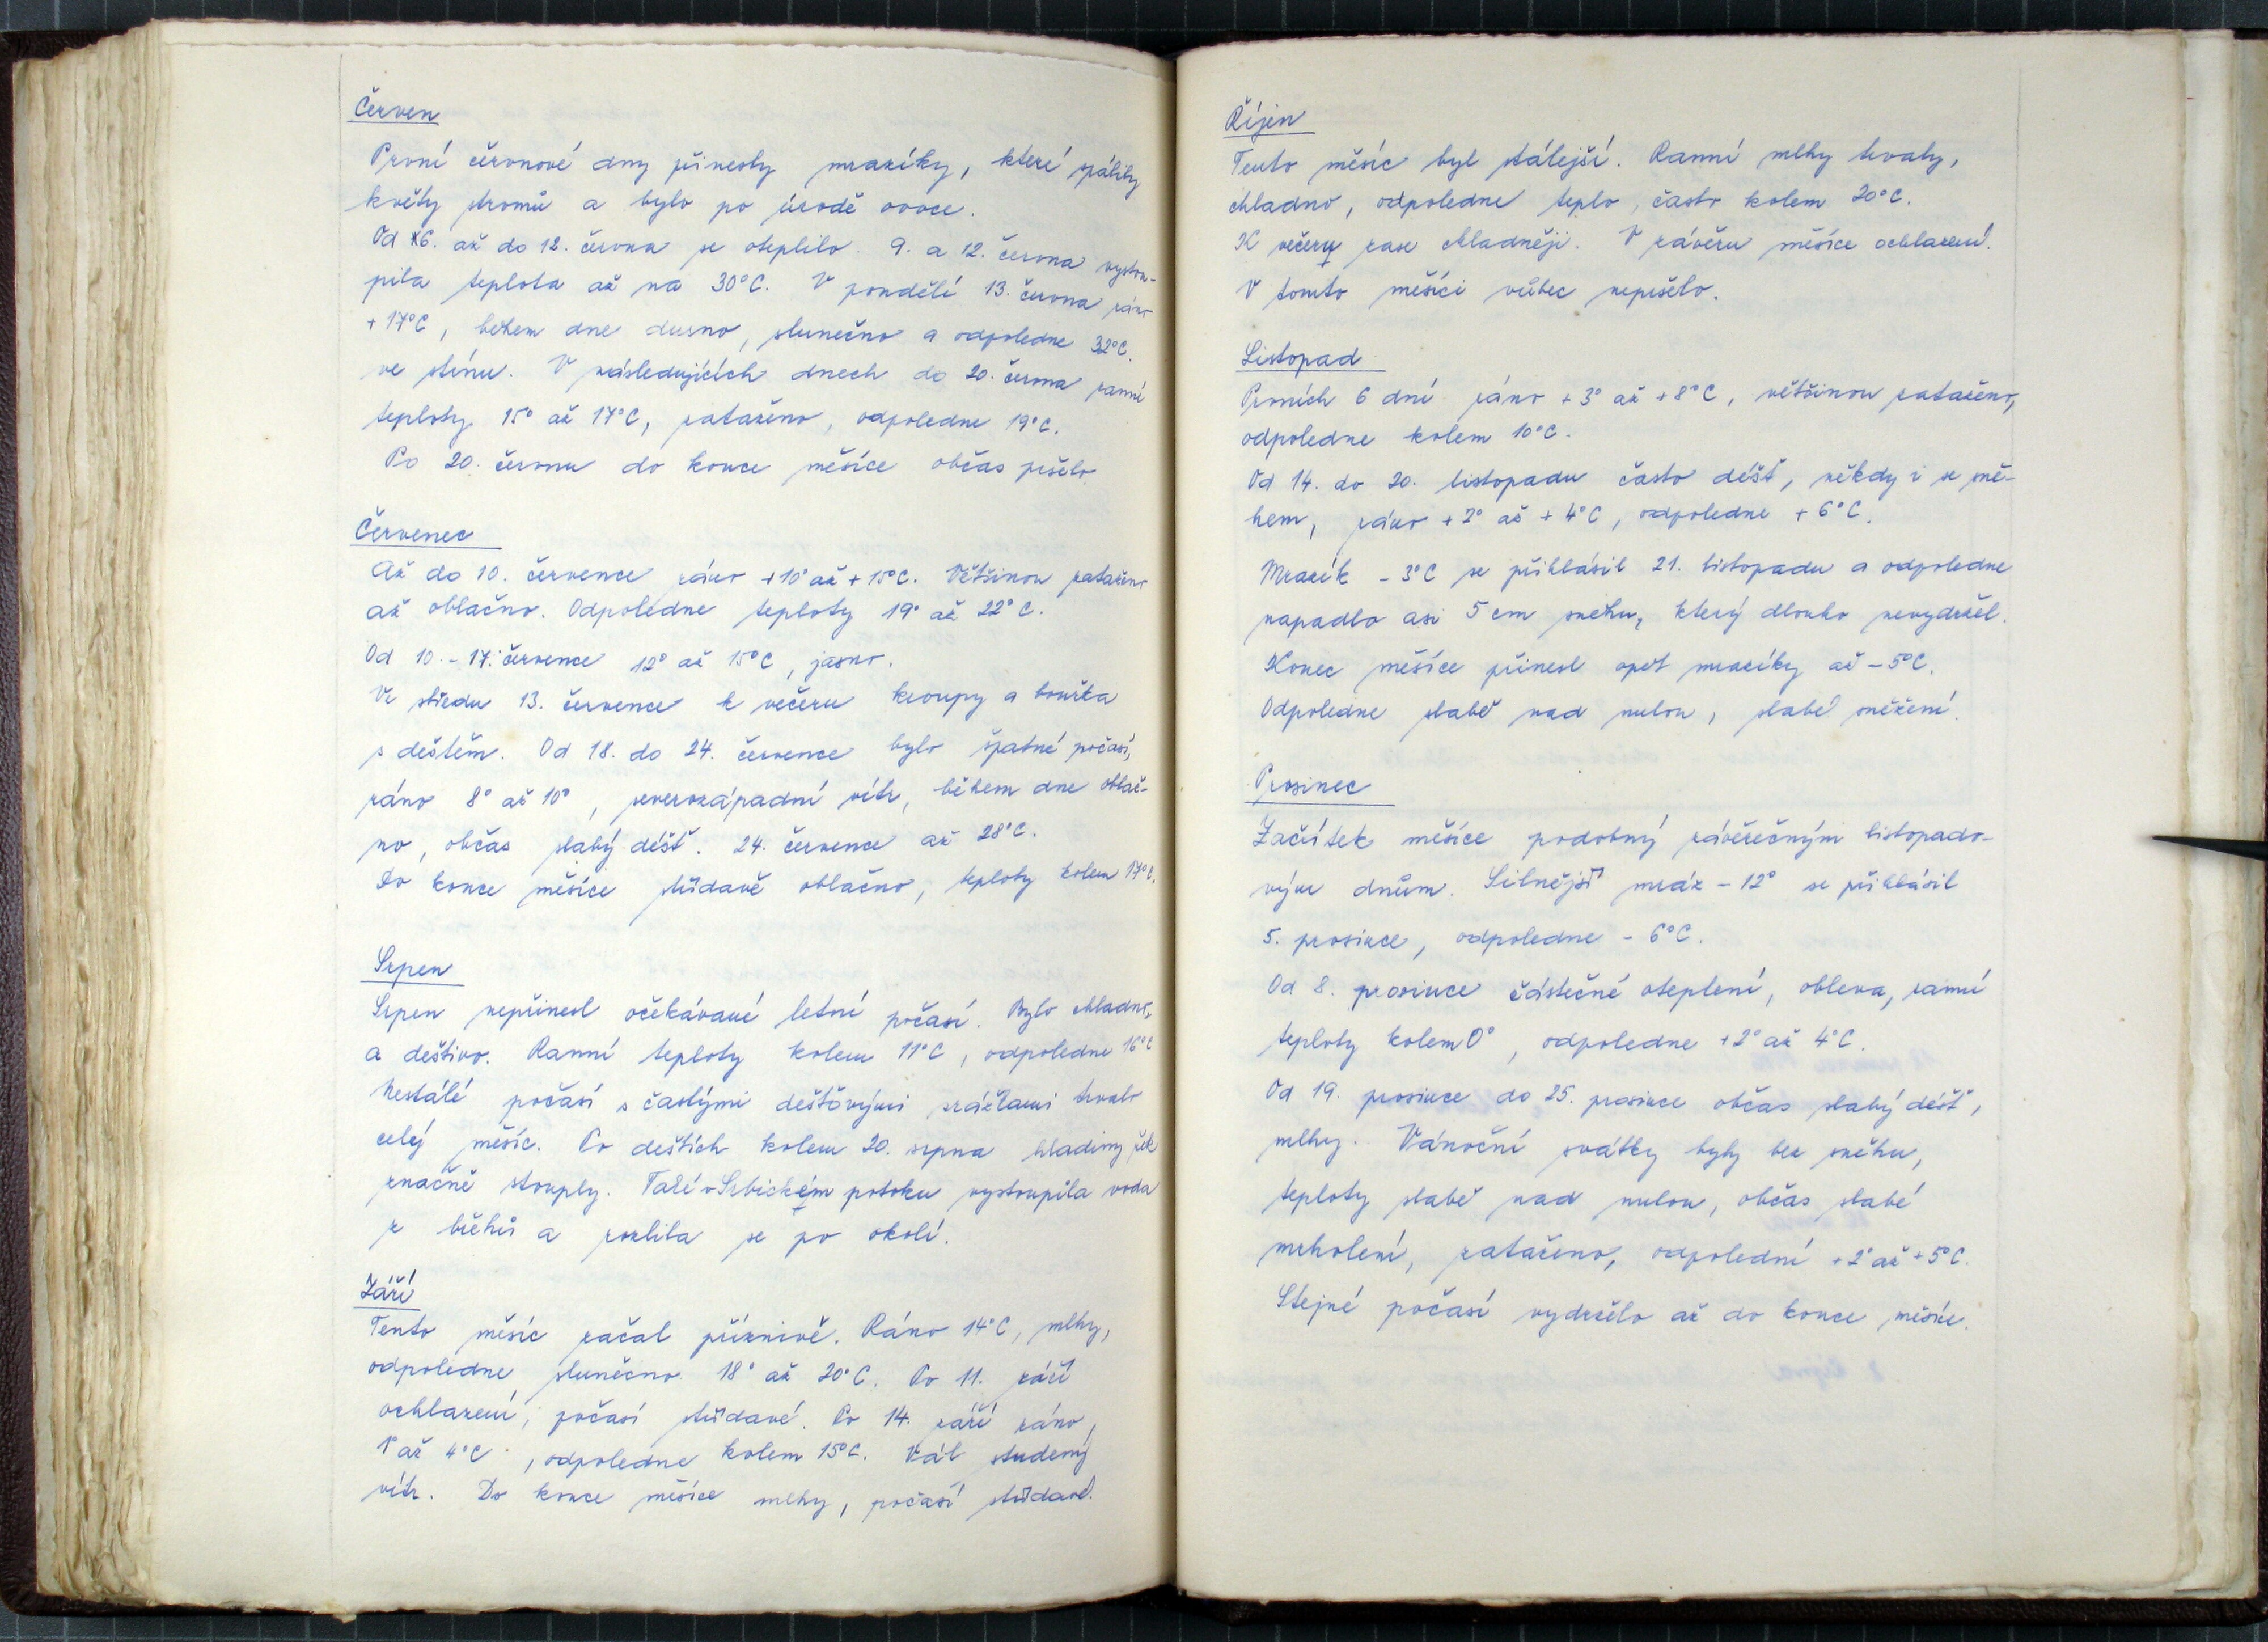 Červen
První červnové dny přinesly mrazíky, které spálily
květy stromů a bylo po úrodě ovoce.
Od 6. až do 12. června se oteplilo. 9. a 12. června vystou-
pila teplota až na 30°C. V pondělí 13. června ráno
+17°C, během dne dusno, slunečno a odpoledne 32°C.
ve stínu. V následujících dnech do 20. června ranní
teploty 15° až 17°C, zataženo, odpoledne 19°C.
Po 20. červnu do konce měsíce občas pršelo.
Červenec
Až do 10. července ráno +10° až +15°C. Většinou zataženo
až oblačno. Odpoledne teploty 19° až 22°C.
Od 10. - 17. července 12° až 15°C, jasno.
Ve středu 13. července k večeru kroupy a bouřka
s deštěm. Od 18. do 24. července bylo špatné počasí,
ráno 8° až 10°, severozápadní vítr, během dne oblač-
no, občas slabý déšť. 24. července až 28°C.
Do konce měsíce střídavě oblačno, teploty kolem 17°C.
Srpen
Srpen nepřinesl očekávané letní počasí. Bylo chladno,
a deštivo. Ranní teploty kolem 11°C, odpoledne 16°C
Nestálé počasí s častými dešťovými srážkami trvalo
celý měsíc. Po deštích kolem 20. srpna hladiny řek
značně stouply. Také v Srbickém potoku vystoupila voda
z břehů a rozlila se po okolí.
Září
Tento měsíc začal příznivě. Ráno 14°C, mlhy,
odpoledne slunečno 18° až 20°C. Po 11. září
ochlazení, počasí střídavé. Po 14. září ráno
1° až 4°C, odpoledne kolem 15°C. Vál studený
vítr. Do konce měsíce mlhy, počasí střídavé.
Říjen
Tento měsíc byl stálejší. Ranní mlhy trvaly,
chladno, odpoledne teplo, často kolem 20°C.
K večeru zase chladněji. V závěru měsíce ochlazení.
V tomto měsíci vůbec nepršelo.
Listopad
Prvních 6 dní ráno +3° až +8°C, většinou zataženo,
odpoledne kolem 10°C.
Od 14. do 20. listopadu často déšť, někdy i se sně-
hem, ráno +2° až +4°C, odpoledne +6°C.
Mrazík -3°C se přihlásil 21. listopadu a odpoledne
napadlo asi 5 cm sněhu, který dlouho nevydržel.
Konec měsíce přinesl opět mrazíky až -5°C.
Odpoledne slabě nad nulou, slabé sněžení.
Prosinec
Začátek měsíce podobný závěrečným listopado-
vým dnům. Silnější mráz -12° se přihlásil
5. prosince, odpoledne -6°C.
Od 8. prosince částečné oteplení, obleva, ranní
teploty kolem 0°, odpoledne +2° až 4°C.
Od 19. prosince do 25. prosince občas slabý déšť,
mlhy. Vánoční svátky byly bez sněhu,
teploty slabě nad nulou, občas slabé
mrholení, zataženo, odpolední +2° až +5°C.
Stejné počasí vydrželo až do konce měsíce.